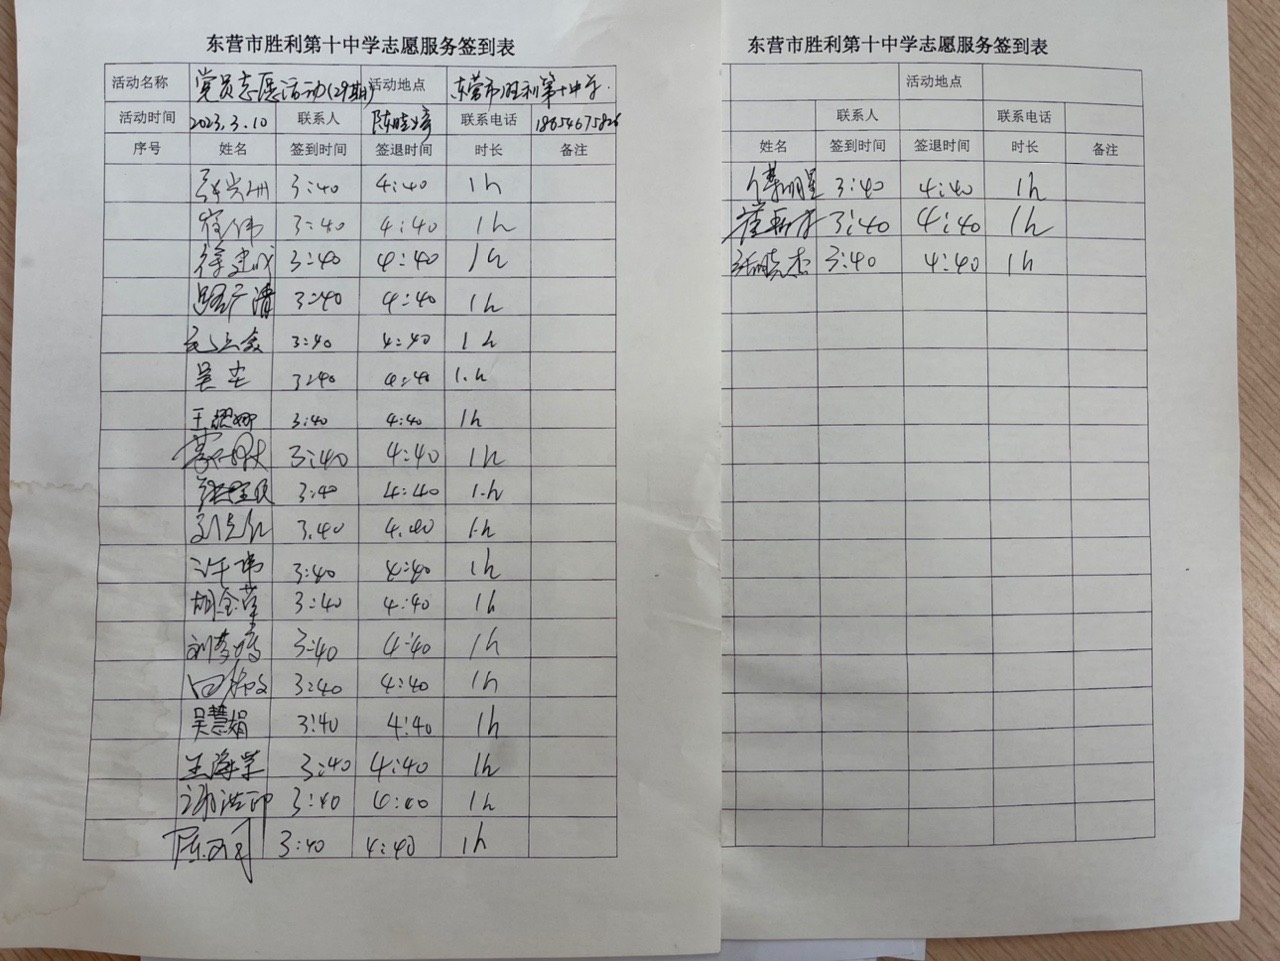 东营市胜利第十中学志愿服务签到表
活动名称 党员志愿活动(29期) 活动地点 东营市胜利第十中学.
活动时间 2023.3.10 联系人 陈晓 联系电话 18654675826
序号 姓名 签到时间 签退时间 时长 备注
3:40 4:40 1h
伟 3:40 4:40 1h
徐建成 3:40 4:40 1h
路广清 3:40 4:40 1h
3:40 4:40 1h
吴 3:40 4:40 1.h
王 娜 3:40 4:40 1h
3:40 4:40 1h
3:40 4:40 1.h
3.40 4.40 1.h
许伟 3:40 4:40 1h
胡金荣 3:40 4:40 1h
刘梦婷 3:40 4:40 1h
3:40 4:40 1h
吴慧娟 3:40 4:40 1h
王海荣 3:40 4:40 1h
谢洪 3:40 4:40 1h
陈 3:40 4:40 1h
东营市胜利第十中学志愿服务签到表
活动地点
联系人 联系电话
姓名 签到时间 签退时间 时长 备注
明星 3:40 4:40 1h
崔 3:40 4:40 1h
张晓杰 3:40 4:40 1h